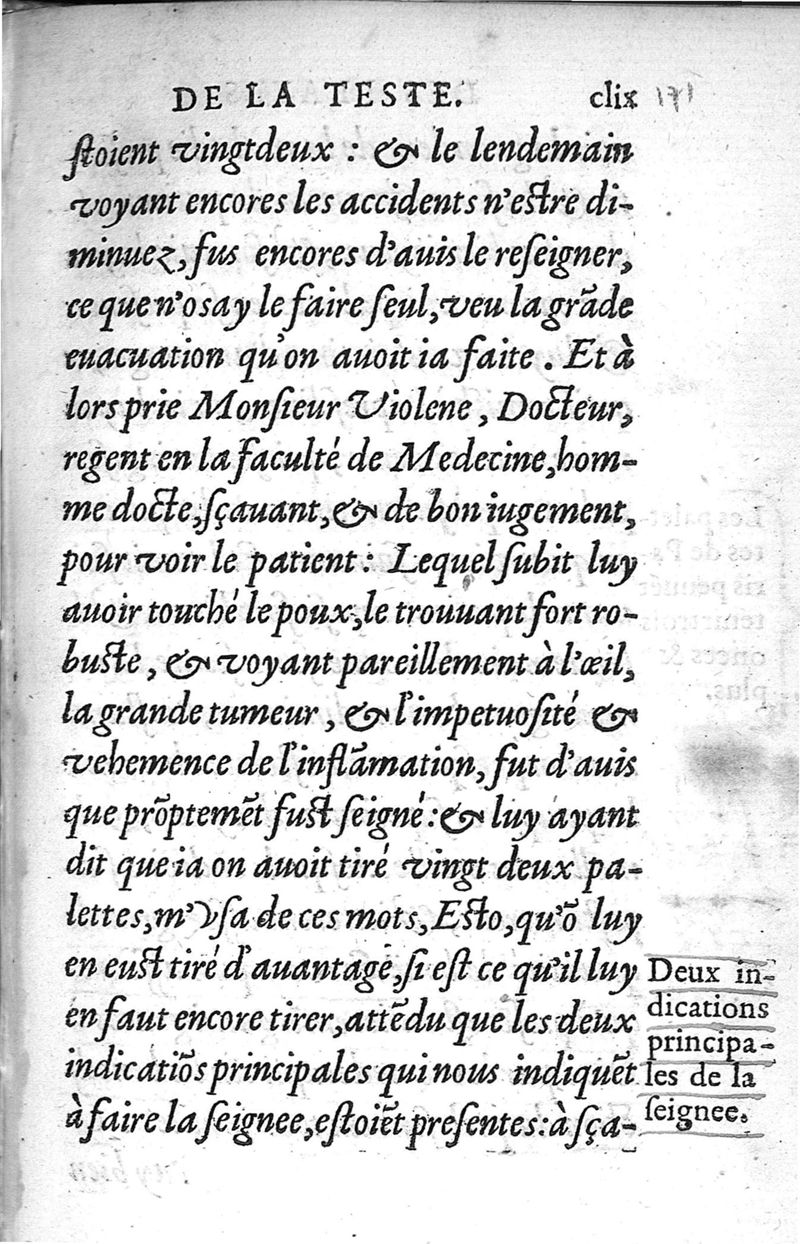 DE LA TESTE. clix 171
ſtoient vingtdeux : & le lendemain
voyant encores les accidents n'eſtre di-
minuez, fus encores d'auis le reſeigner,
ce que n'osay le faire ſeul, veu la grãde
euacuation qu'on auoit ia faite . Et à
lors prie Monſieur Violene, Docteur,
regent en la faculté de Medecine, hom-
me docte, ſçauant, & de bon iugement,
pour voir le patient : Lequel ſubit luy
auoir touché le poux, le trouuant fort ro-
buſte, & voyant pareillement à l'œil,
la grande tumeur, & l'impetuoſité &
vehemence de l'inflãmation, fut d'auis
que prõptemẽt fuſt ſeigné : & luy ayant
dit que ia on auoit tiré vingt deux pa-
lettes, m'vſa de ces mots, Eſto, qu'õ luy
en euſt tiré d'auantage, ſi eſt ce qu'il luy
en faut encore tirer, attẽdu que les deux
indicatiõs principales qui nous indiquẽt
à faire la ſeignee, eſtoiẽt preſentes : à ſça-
Deux in-
dications
principa-
les de la
ſeignee.